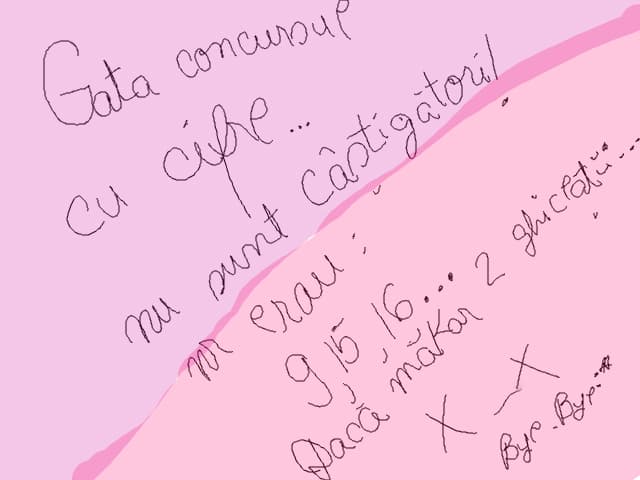 Gata concursul
cu cifre...
nu sunt câstigători!
nr erau:
9, 15, 16...
Dacă măkar 2 ghiceatii...
X_X
Bye.Bye...*